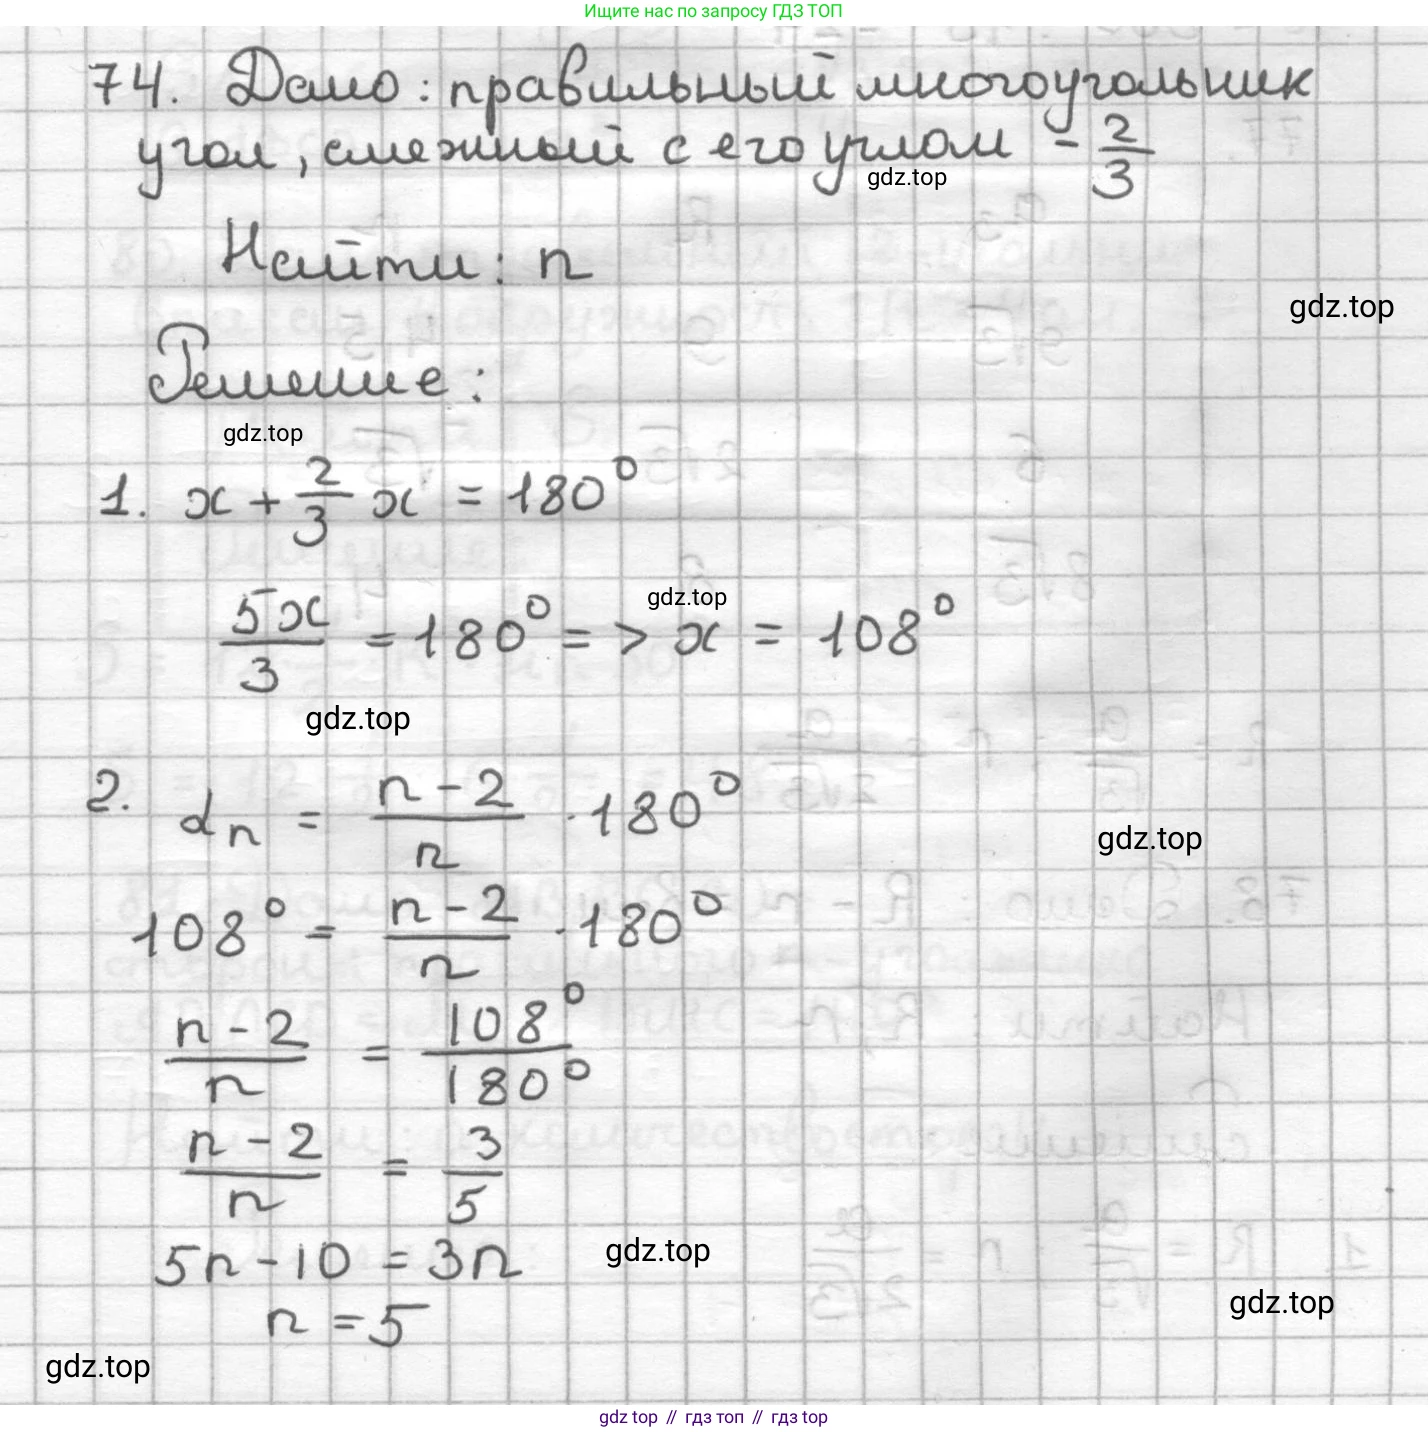 Ищите нас по запросу ГДЗ ТОП
74. Дано: правильный многоугольник
угол, смежный с его углом - 2/3
gdz.top
Найти: n
gdz.top
Решение:
gdz.top
1. x + 2/3 x = 180°
gdz.top
5x/3 = 180° => x = 108°
gdz.top
2. αn = n-2/n · 180°
gdz.top
108° = n-2/n · 180°
n-2/n = 108°/180°
n-2/n = 3/5
5n-10 = 3n
gdz.top
gdz.top
n = 5
gdz.top
gdz top // гдз топ // gdz top